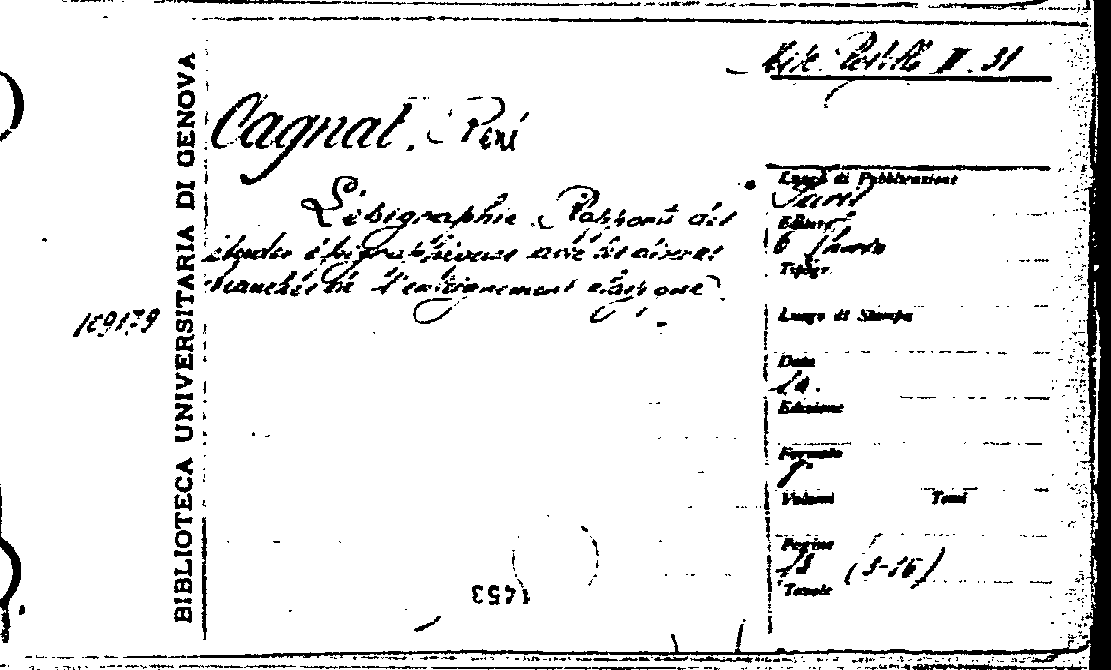 II. 31
Cagnat. René
L'épigraphie. Rapports des
études épigraphiques avec les diverses
branches de l'enseignement
109179
BIBLIOTECA UNIVERSITARIA DI GENOVA
Luogo di Pubblicazione
Paris
Editore
Tipogr
Luogo di Stampa
Data
Edizione
Formato
8°
Volumi Tomi
Pagine
(3-16)
Tavole
1453